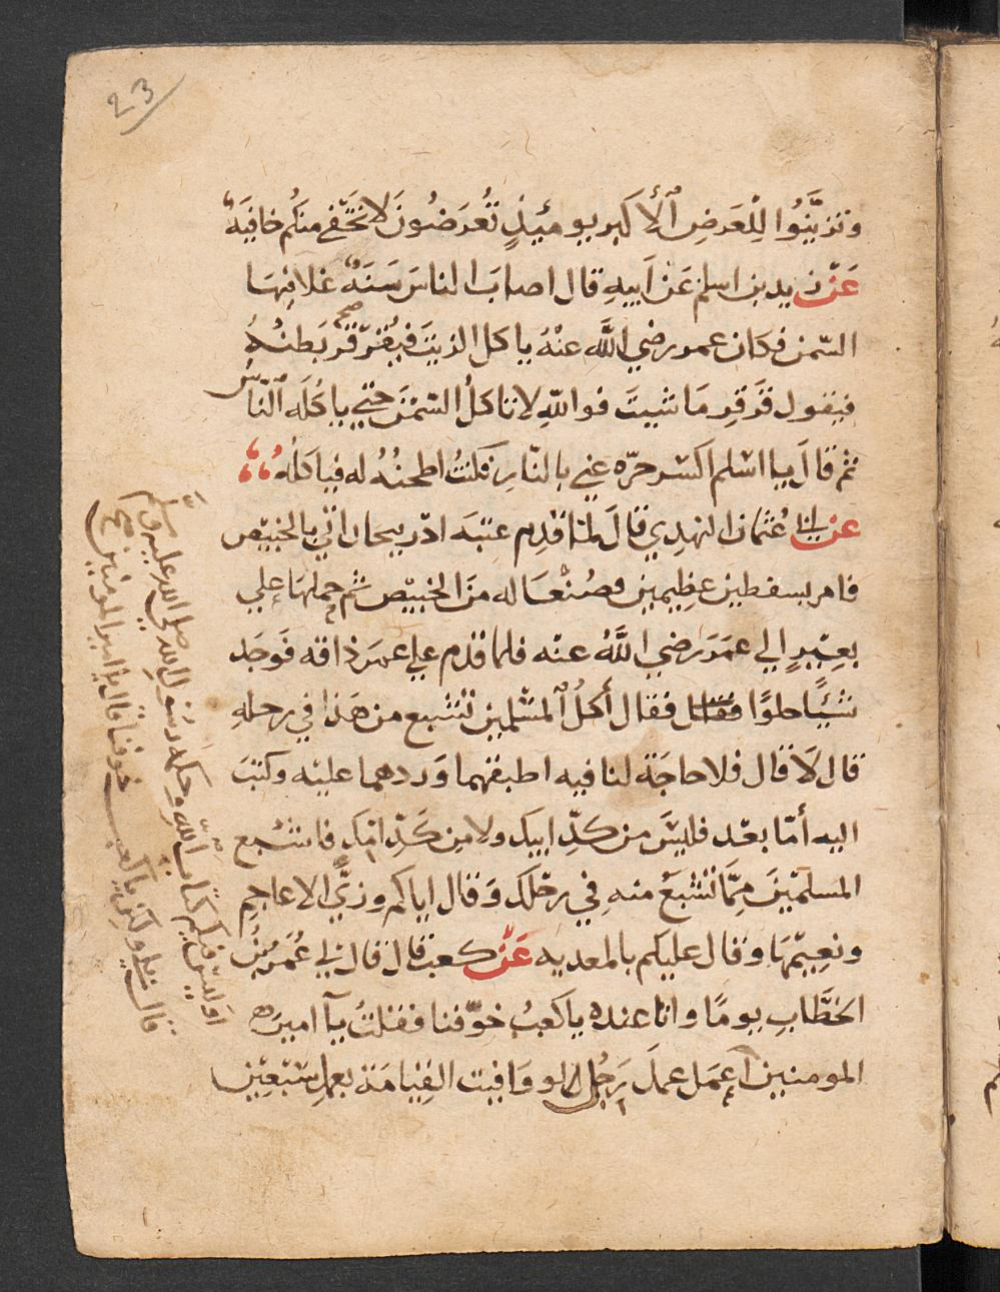 23
وتزيَّنُوا لِلْعَرضِ ٱلأكبر يومئذٍ تُعرَضُونَ لا تَخفي منكُم خافِيَةٌ
عَنْ زيد بن اسلم عَن اَبيهِ قال اصابَ الناسَ سَنَةٌ غلا فِيهَا
السّمن فكان عمر رضي اللَّه عنْهُ ياكل الزيتَ فيُقَرْقر بَطنُهُ
صح
فيقول قَرقِر مَا شيتَ فوالله لا تاكلُ السَّمْنَ حتي ياكُلَه النّاسُ
ثم قال يا اسلم اكسر حرّه عني بالنّارِ فكنتُ اطبخُهُ له فياكلُهُ
عن ابي عُثمان النهدِي قالَ لما قدِم عتبَه اذربيجان اتي بالخبيص
فامر بسفطين عظِيمين فصُنْعَا له من الخبيّص ثم حملها علي
بعِيرٍ الي عمَرَ رضي اللَّهُ عنه فلما قدم علي عمَر ذاقه فَوجَد
شيًا حلوًا فقال أكلُ ٱلمسْلمين تشبع من هَذا في رحلهِ
قال لَا قال فلا حاجَة لنا فيه اطبقهما وَردهما عليه وكتبَ
اليه أمّا بعْد فليسَ من كدِّ ابيك ولا مِن كَدِّ امّك فاشْبع
المسلمْينَ مِمَّا تشْبَعْ منهِ في رحْلك وَقال اياكم وزيَّ الاعاجِمِ
ونعِيمَهَا وقال عليكم بالمعديه عَنْ كعب قال قال لي عُمَر بنُ
الخطَّابِ يومًا وانا عنده ياكَعبُ خوّفنا فقلتُ يآ امير
المومنين اعمَل عملَ رَجُلٍ لو وَافيت القِيَامَة بعملِ سَبْعِيْن
اوليس فيكم كتابُ اللّه وحكمه رسول الله صلي الله عليه وسلم
قال بلي ولكن ياكعب خوفنا قال يا امير المومنين صح